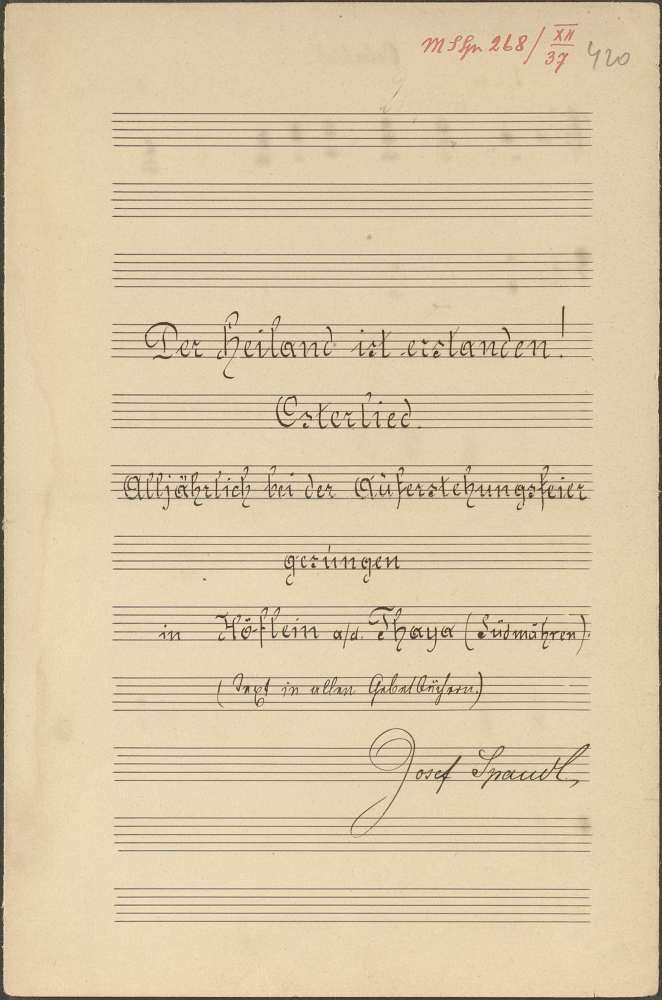 MSHn 268/XII
37
420
Der Heiland ist erstanden!
Osterlied.
Alljährlich bei der Auferstehungsfeier
gesungen
in Höflein a/d. Thaya (Südmähren).
(Text in allen Gebetbüchern.)
Josef Spandl,